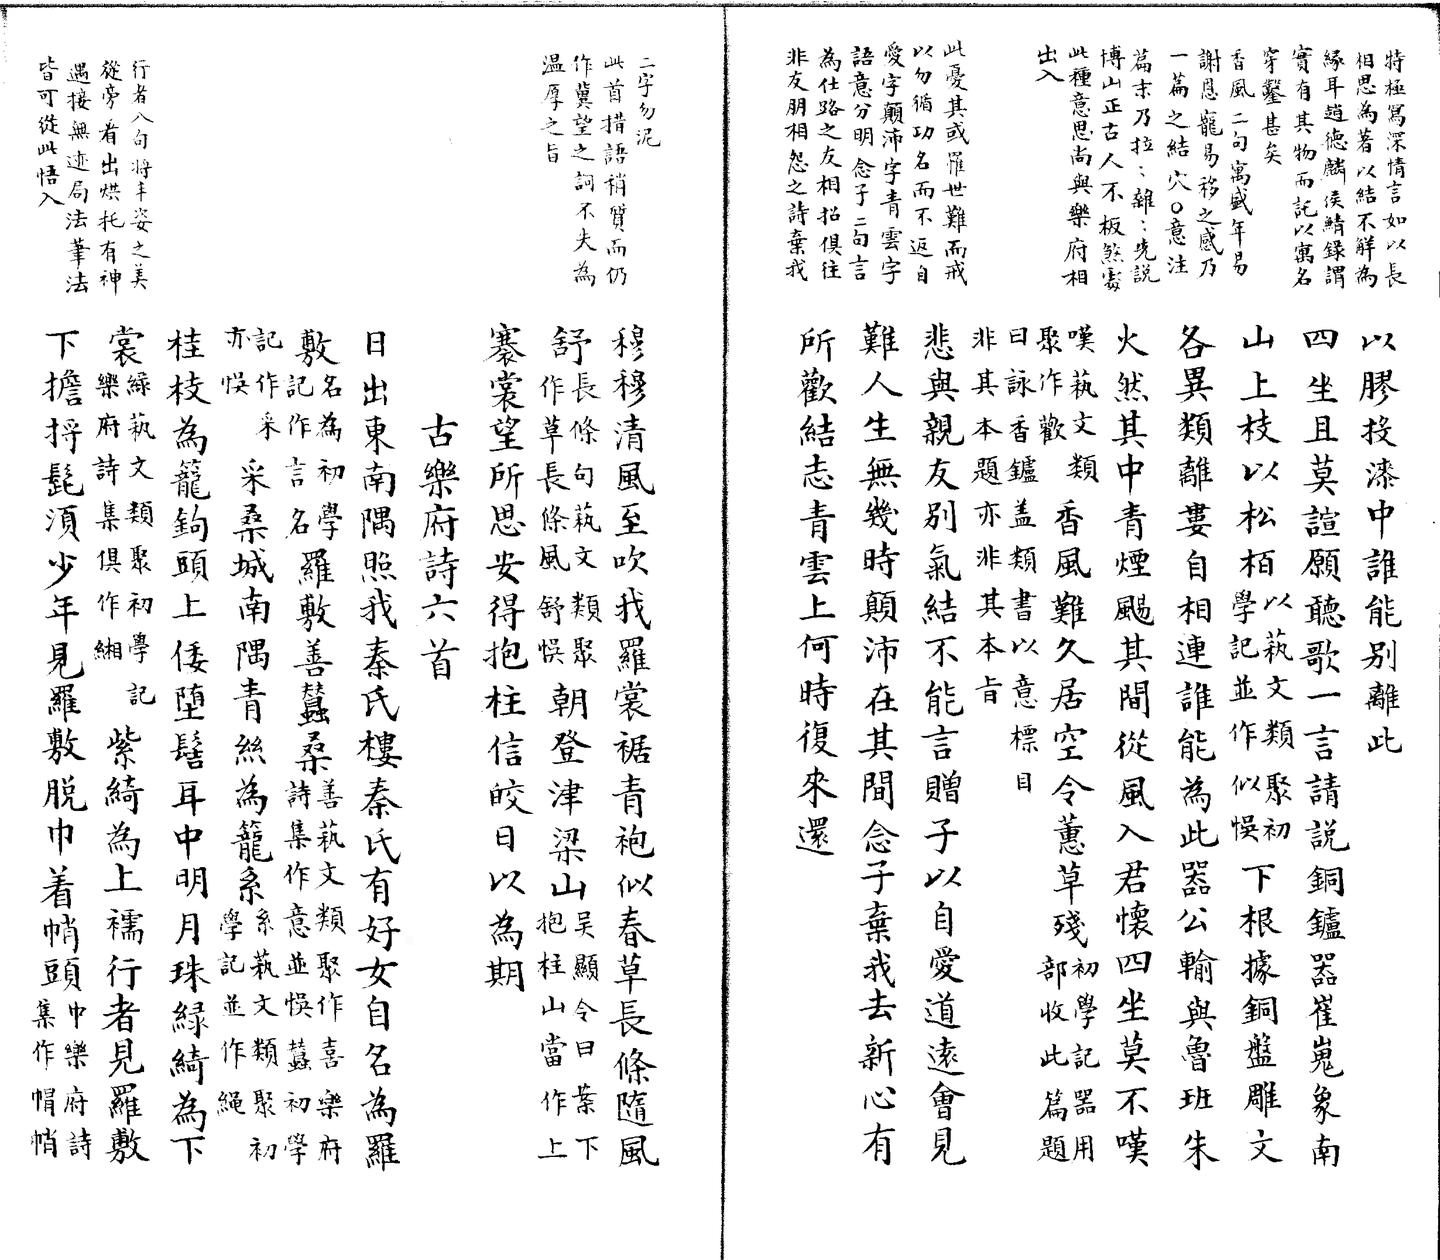 特極寫深情言如以長
相思為著以結不解為
緣耳趙德麟侯鯖錄謂
實有其物而記以寓名
穿鑿甚矣
香風二句寓盛年易
謝恩寵易移之感乃
一篇之結穴○意注
篇末乃拉:雜:先說
博山正古人不板煞處
此種意思尚與樂府相
出入
此憂其或罹世難而戒
以勿循功名而不返自
愛字顛沛字青雲字
語意分明念子二句言
為仕路之友相招俱往
非友朋相怨之詩棄我
以膠投漆中誰能別離此
四坐且莫諠願聽歌一言請說銅鑪器崔嵬象南
山上枝以松栢以藝文類聚初學記並作似悞下根據銅盤雕文
各異類離婁自相連誰能為此器公輸與魯班朱
火然其中青煙颺其間從風入君懷四坐莫不嘆
嘆藝文類聚作歡香風難久居空令蕙草殘初學記器用部收此篇題
曰詠香鑪盖類書以意標目非其本題亦非其本旨
悲與親友別氣結不能言贈子以自愛道遠會見
難人生無幾時顛沛在其間念子棄我去新心有
所歡結志青雲上何時復來還
二字勿泥
此首措語稍質而仍
作冀望之詞不失為
温厚之旨
行者八句將丰姿之美
從旁看出烘托有神
遇接無迹局法筆法
皆可從此悟入
穆穆清風至吹我羅裳裾青袍似春草長條隨風
舒長條句藝文類聚作草長條風舒悞朝登津梁山吳顯令曰葉下抱柱山當作上
褰裳望所思安得抱柱信皎日以為期
古樂府詩六首
日出東南隅照我秦氏樓秦氏有好女自名為羅
敷名為初學記作言名羅敷善蠶桑善藝文類聚作喜樂府詩集作意並悞蠶初學
記作采亦悞采桑城南隅青絲為籠系系藝文類聚初學記並作繩
桂枝為籠鉤頭上倭堕髻耳中明月珠緑綺為下
裳緑藝文類聚初學記樂府詩集俱作緗紫綺為上襦行者見羅敷
下擔捋髭須少年見羅敷脱巾着帩頭巾樂府詩集作帽帩